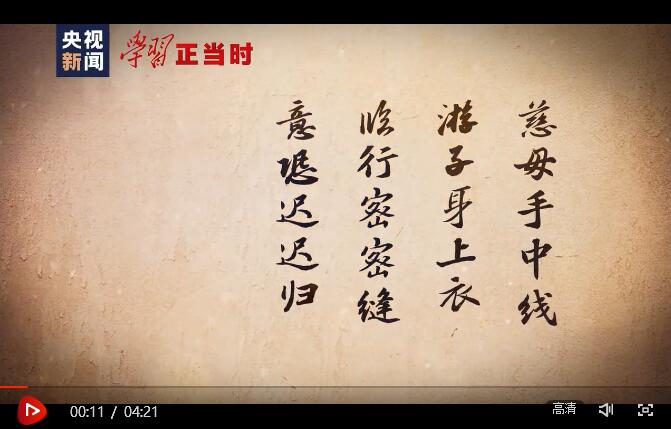 央视
新闻
學習正当时
慈母手中线
游子身上衣
临行密密缝
意恐迟迟归
00:11 / 04:21
高清